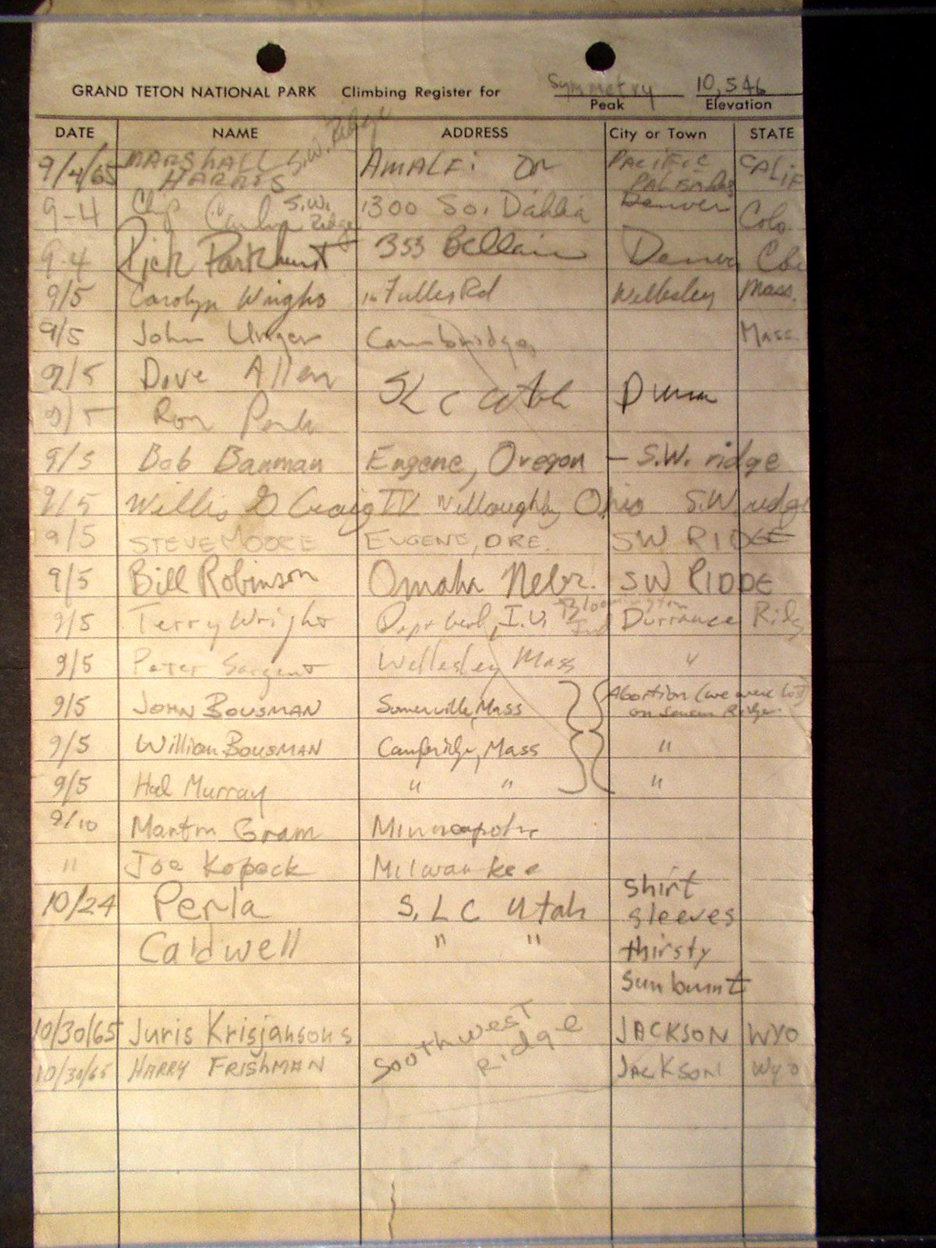 GRAND TETON NATIONAL PARK Climbing Register for Symmetry 10,546
Peak Elevation
DATE NAME ADDRESS City or Town STATE
9/4/65 MARSHALL HARRIS S.W. Ridge AMALFI DR PACIFIC PALISADES CALIF
9-4 Chip S.W. Ridge 1300 So. Dahlia Denver Colo.
9-4 Rick Parkhurst 355 Bellaire Denver
9/5 Carolyn Fuller Rd Wellesley Mass.
9/5 John Unger Cambridge Mass.
9/5 Dave Allen SLC Utah
9/5 Ron
9/5 Bob Bauman Eugene, Oregon – S.W. ridge
9/5 Willis G Craig IV Willoughby Ohio S.W ridge
9/5 STEVE MOORE EUGENE, ORE. SW RIDGE
9/5 Bill Robinson Omaha Nebr. SW RIDDE
9/5 Terry Wright I.U. Bloomington Ind Durrance Ridg
9/5 Peter Sargent Wellesley Mass "
9/5 JOHN BOUSMAN Somerville, Mass Abortion (we were
on Ridge.
9/5 William BOUSMAN Cambridge, Mass "
9/5 Hal Murray " " "
9/10 Martin Gram Minneapolis
" Joe Kopeck Milwaukee
10/24 Perla S, L C Utah shirt sleeves
Caldwell " " thirsty
sunburnt
10/30/65 Juris Krisjansons Southwest Ridge JACKSON WYO
10/30/65 HARRY FRISHMAN JACKSON WYO